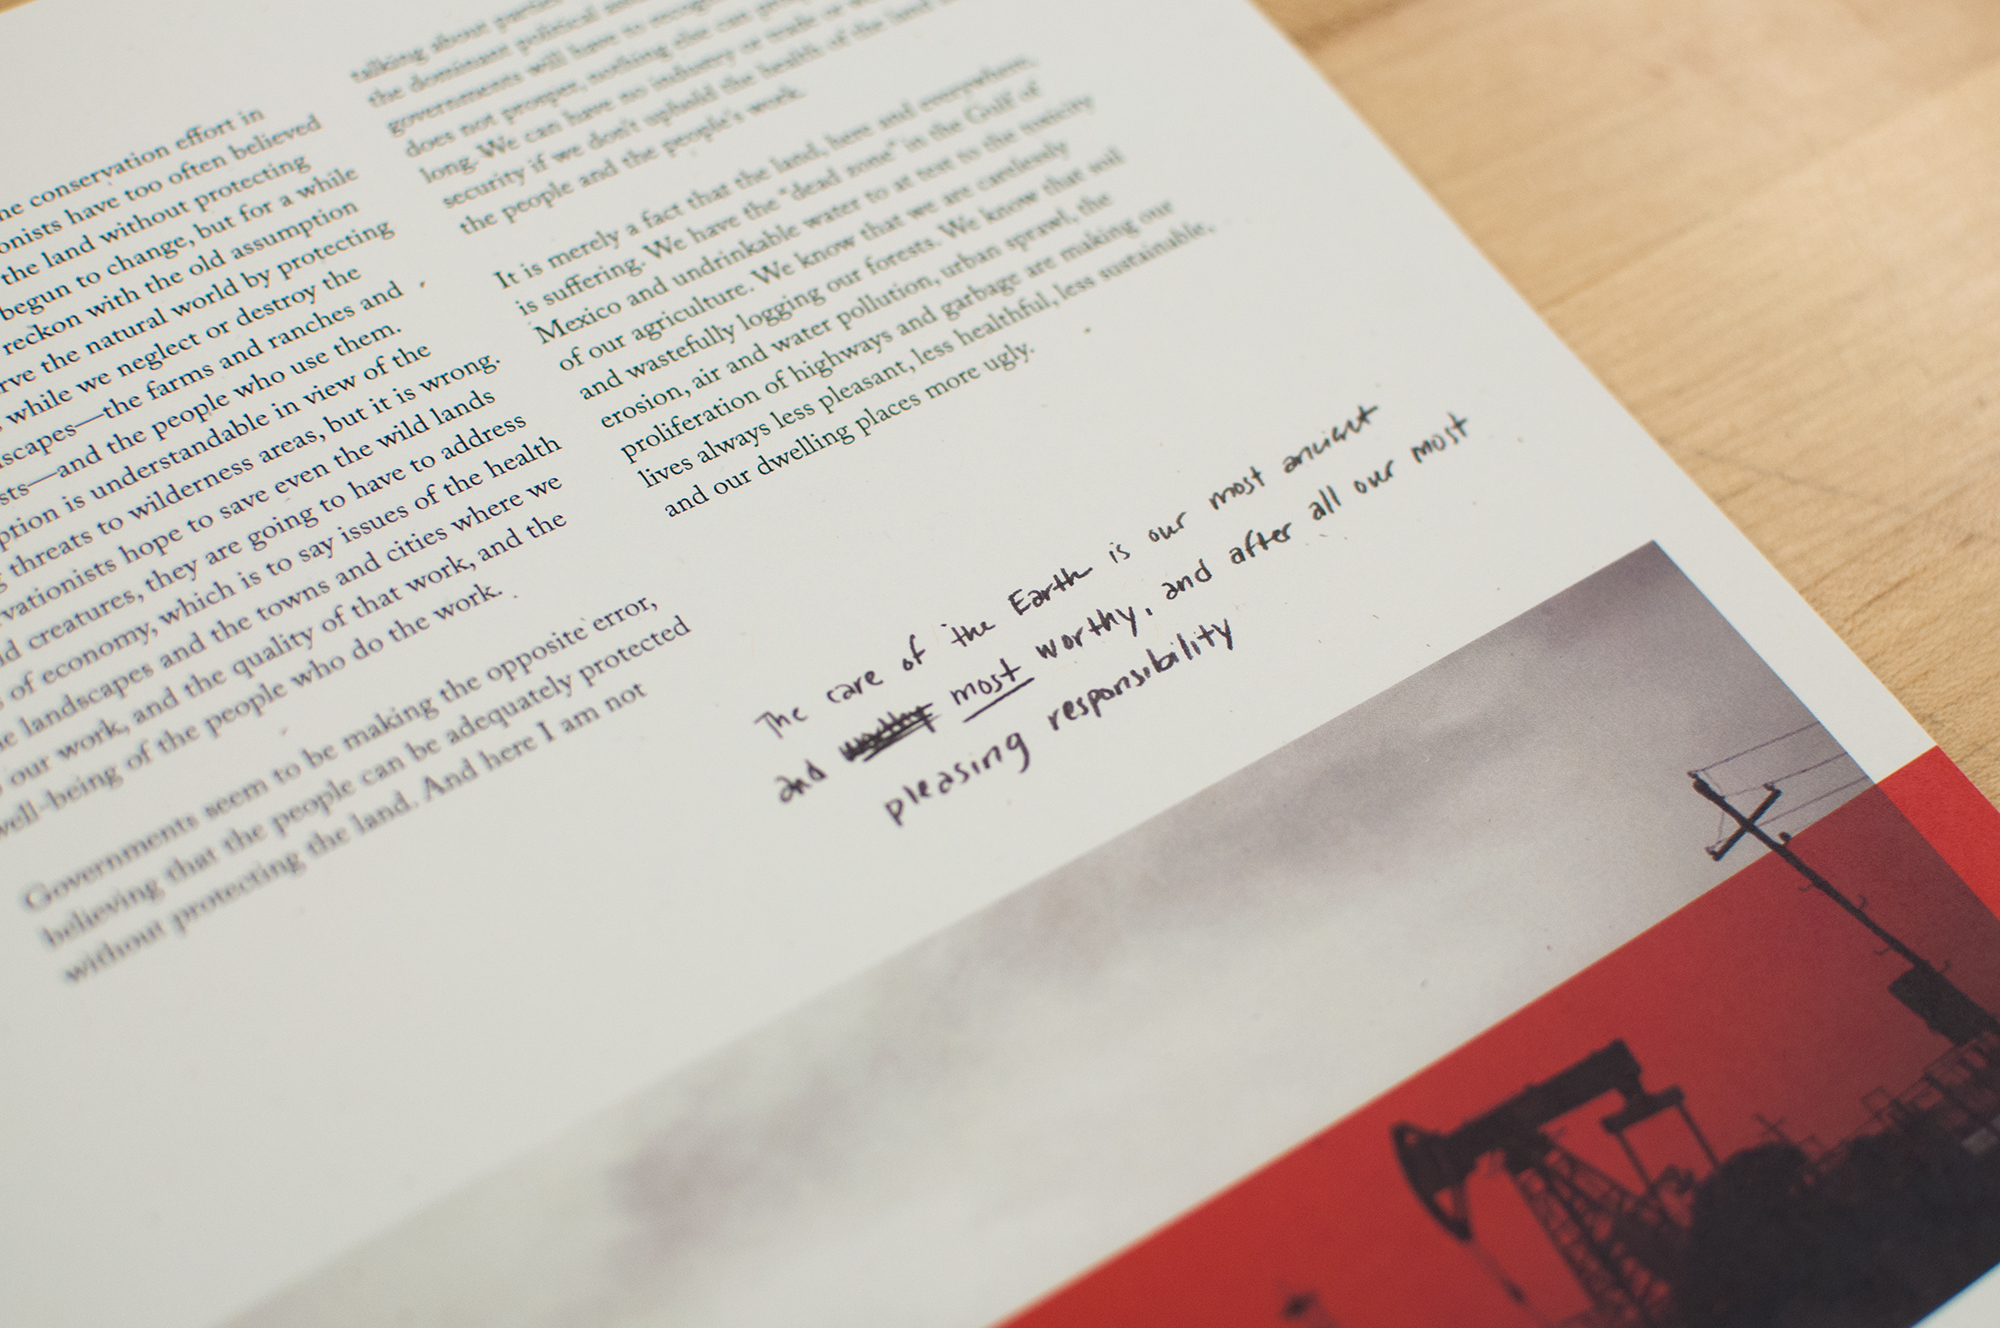 he conservation effort in
onists have too often believed
the land without protecting
begun to change, but for a while
reckon with the old assumption
rve the natural world by protecting
while we neglect or destroy the
scapes—the farms and ranches and
sts—and the people who use them.
ption is understandable in view of the
threats to wilderness areas, but it is wrong.
vationists hope to save even the wild lands
d creatures, they are going to have to address
of economy, which is to say issues of the health
e landscapes and the towns and cities where we
our work, and the quality of that work, and the
well-being of the people who do the work.
Governments seem to be making the opposite error,
believing that the people can be adequately protected
without protecting the land. And here I am not
talking about parties
the dominant political
governments will have to recognize
does not prosper, nothing else can
long. We can have no industry or trade or
security if we don't uphold the health of the land
the people and the people's work.
It is merely a fact that the land, here and everywhere,
is suffering. We have the “dead zone” in the Gulf of
Mexico and undrinkable water to at test to the toxicity
of our agriculture. We know that we are carelessly
and wastefully logging our forests. We know that soil
erosion, air and water pollution, urban sprawl, the
proliferation of highways and garbage are making our
lives always less pleasant, less healthful, less sustainable,
and our dwelling places more ugly.
The care of the Earth is our most ancient
and most worthy, and after all our most
pleasing responsibility